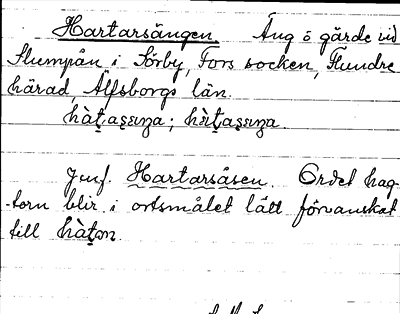 Hartarsängen Äng o gärde vid
Slumpån i Sörby, Fors socken, Flundre
härad, Älfsborgs län.
Jmf. Hartarsåsen. Ordet hag-
torn blir i ortsmålet lätt förvanskat
till